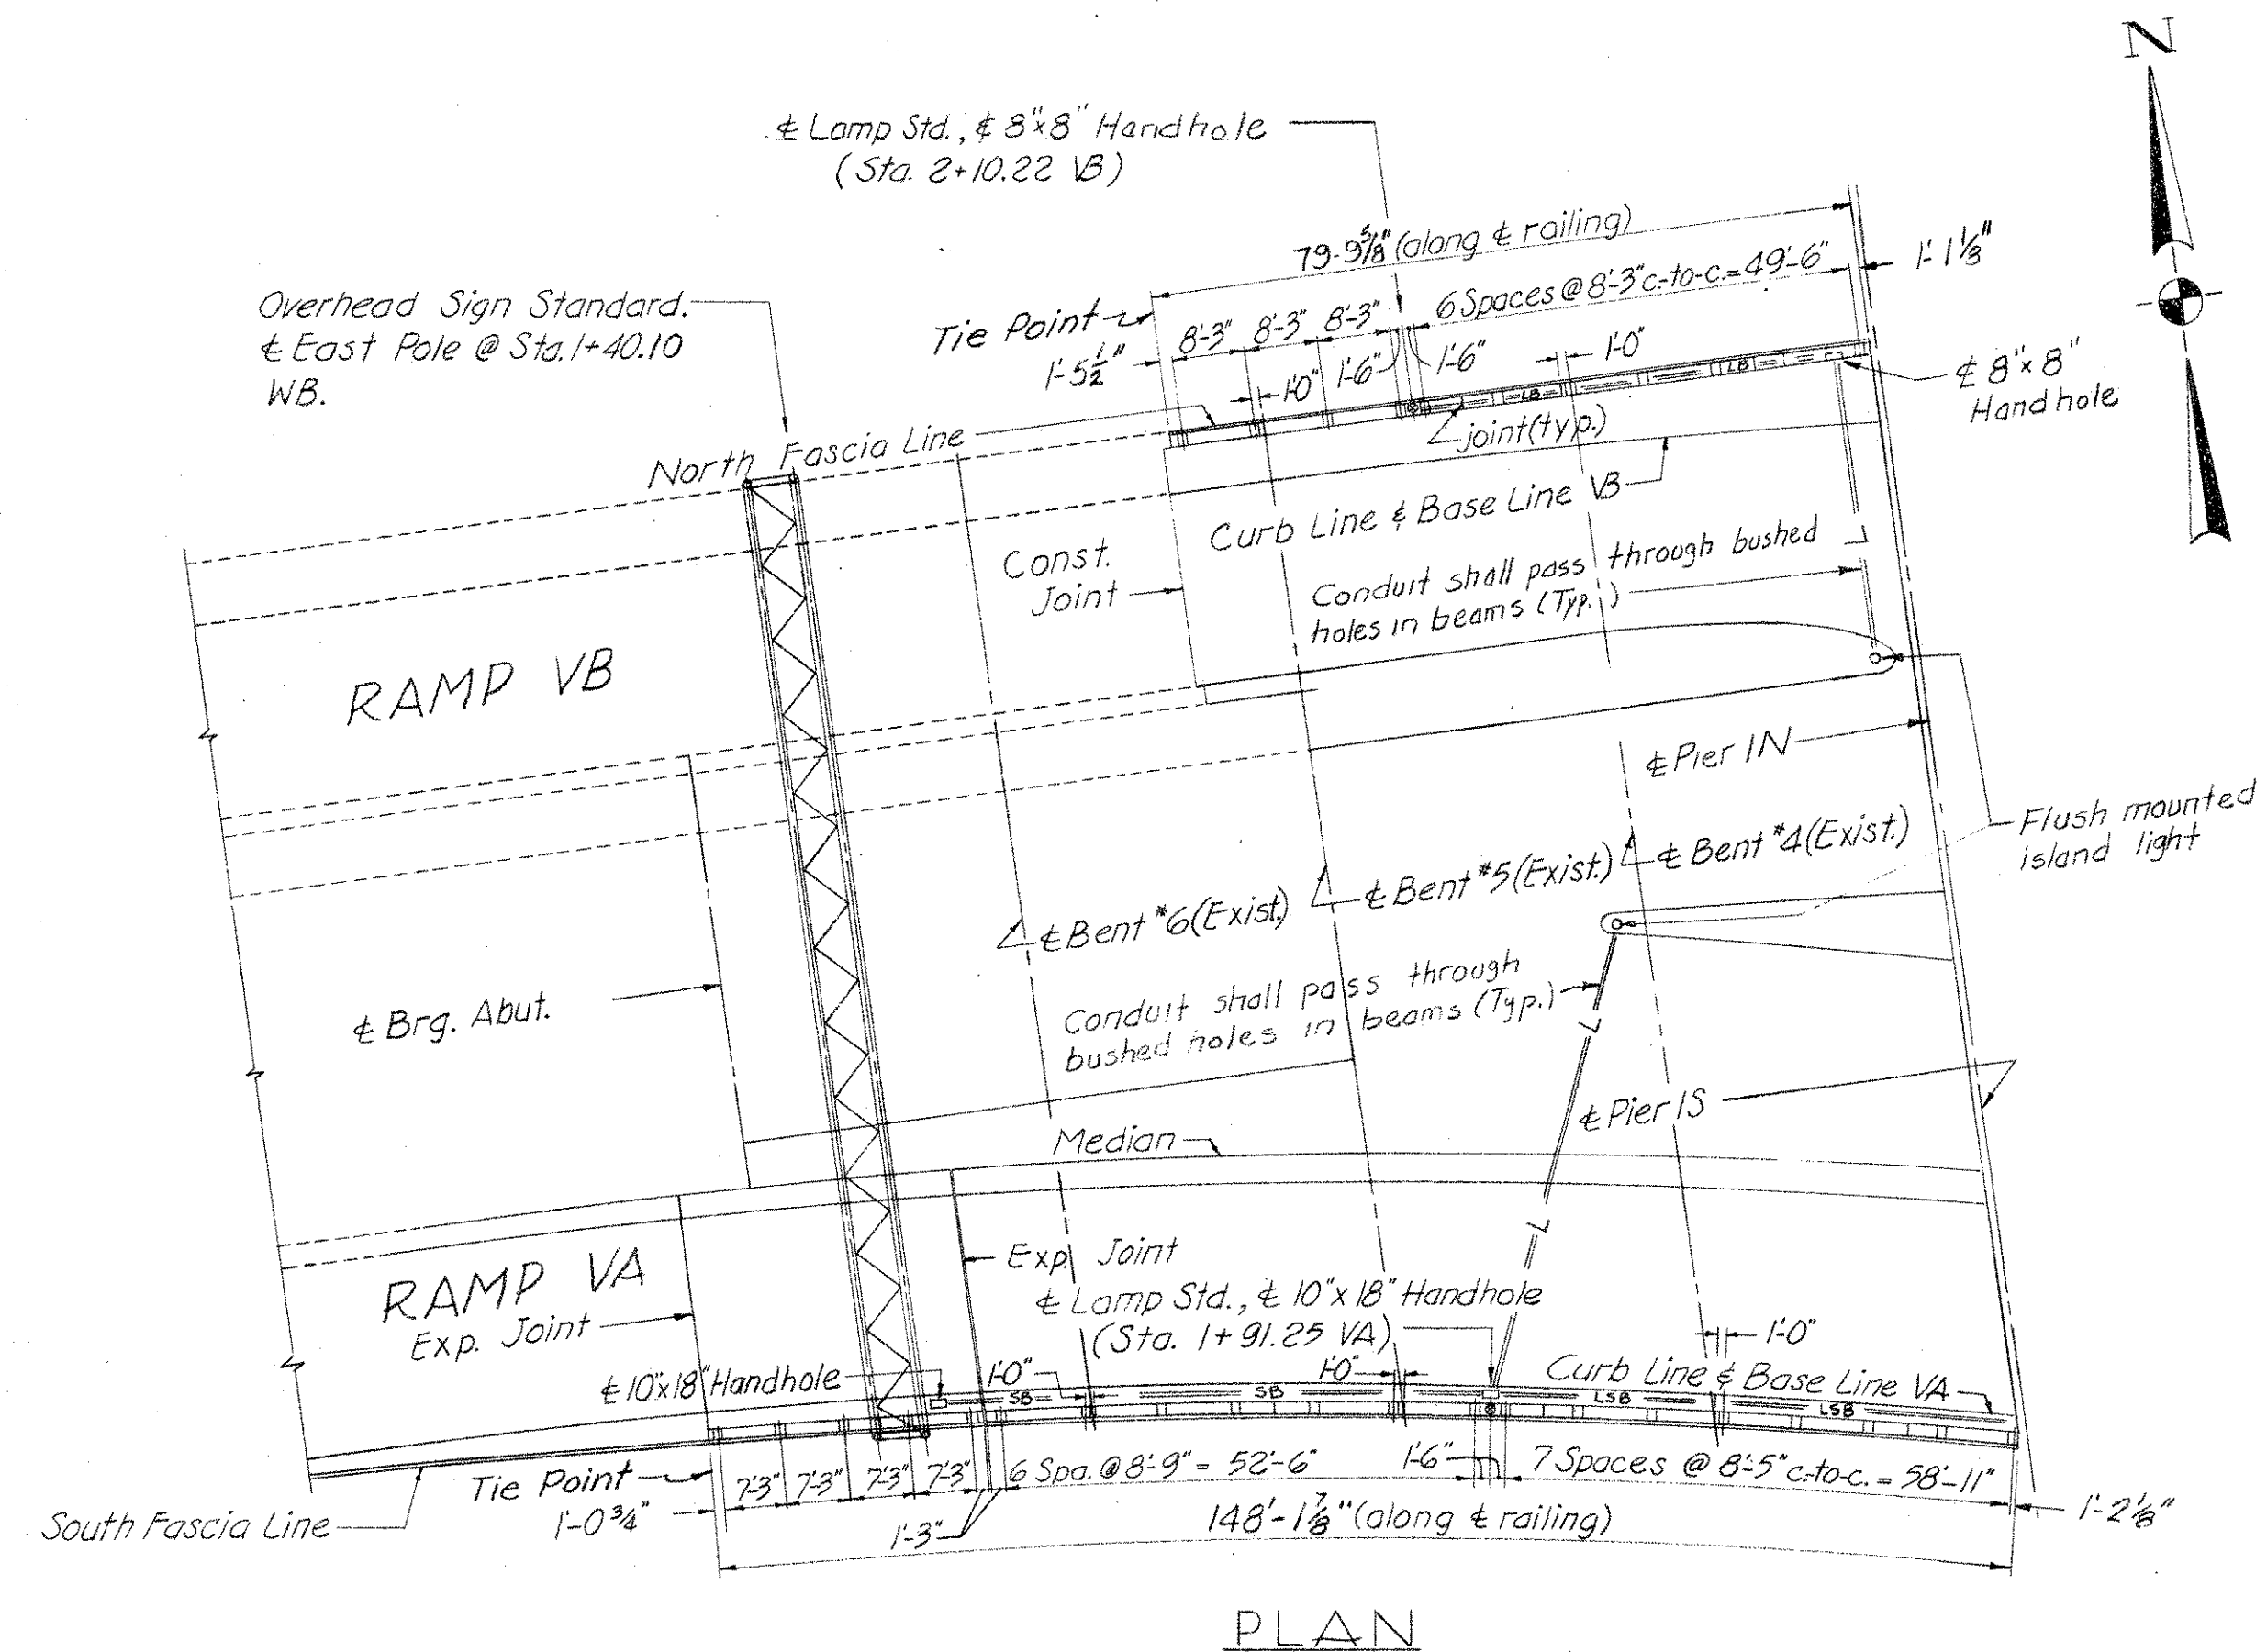 N
℄ Lamp Std., ℄ 8"x8" Handhole
(Sta. 2+10.22 VB)
79-9⅝" (along ℄ railing)
1'-1⅛"
6 Spaces @ 8'-3" c.-to-c. = 49'-6"
Overhead Sign Standard.
℄ East Pole @ Sta. 1+40.10
WB.
Tie Point
8'-3" 8'-3" 8'-3"
1'-5½"
1'-0" 1'-6" 1'-6" 1'-0"
℄ 8"x8"
Handhole
LB LB
North Fascia Line
joint (typ.)
Curb Line & Base Line VB
Const.
Joint
Conduit shall pass through bushed
holes in beams (Typ.)
RAMP VB
℄ Pier 1N
Flush mounted
island light
℄ Bent #4 (Exist.)
℄ Bent #5 (Exist.)
℄ Bent #6 (Exist.)
℄ Brg. Abut.
Conduit shall pass through
bushed holes in beams (Typ.)
℄ Pier 1S
Median
RAMP VA
Exp. Joint
Exp. Joint
℄ Lamp Std., ℄ 10"x18" Handhole
(Sta. 1+91.25 VA)
1'-0"
℄ 10"x18" Handhole
1'-0" 1'-0"
Curb Line & Base Line VA
SB SB LSB LSB
Tie Point
7'-3" 7'-3" 7'-3" 7'-3"
6 Spa. @ 8'-9" = 52'-6"
1'-6"
7 Spaces @ 8'-5" c.-to-c. = 58'-11"
South Fascia Line
1'-0¾"
1'-3"
148'-1⅞" (along ℄ railing)
1'-2⅛"
PLAN